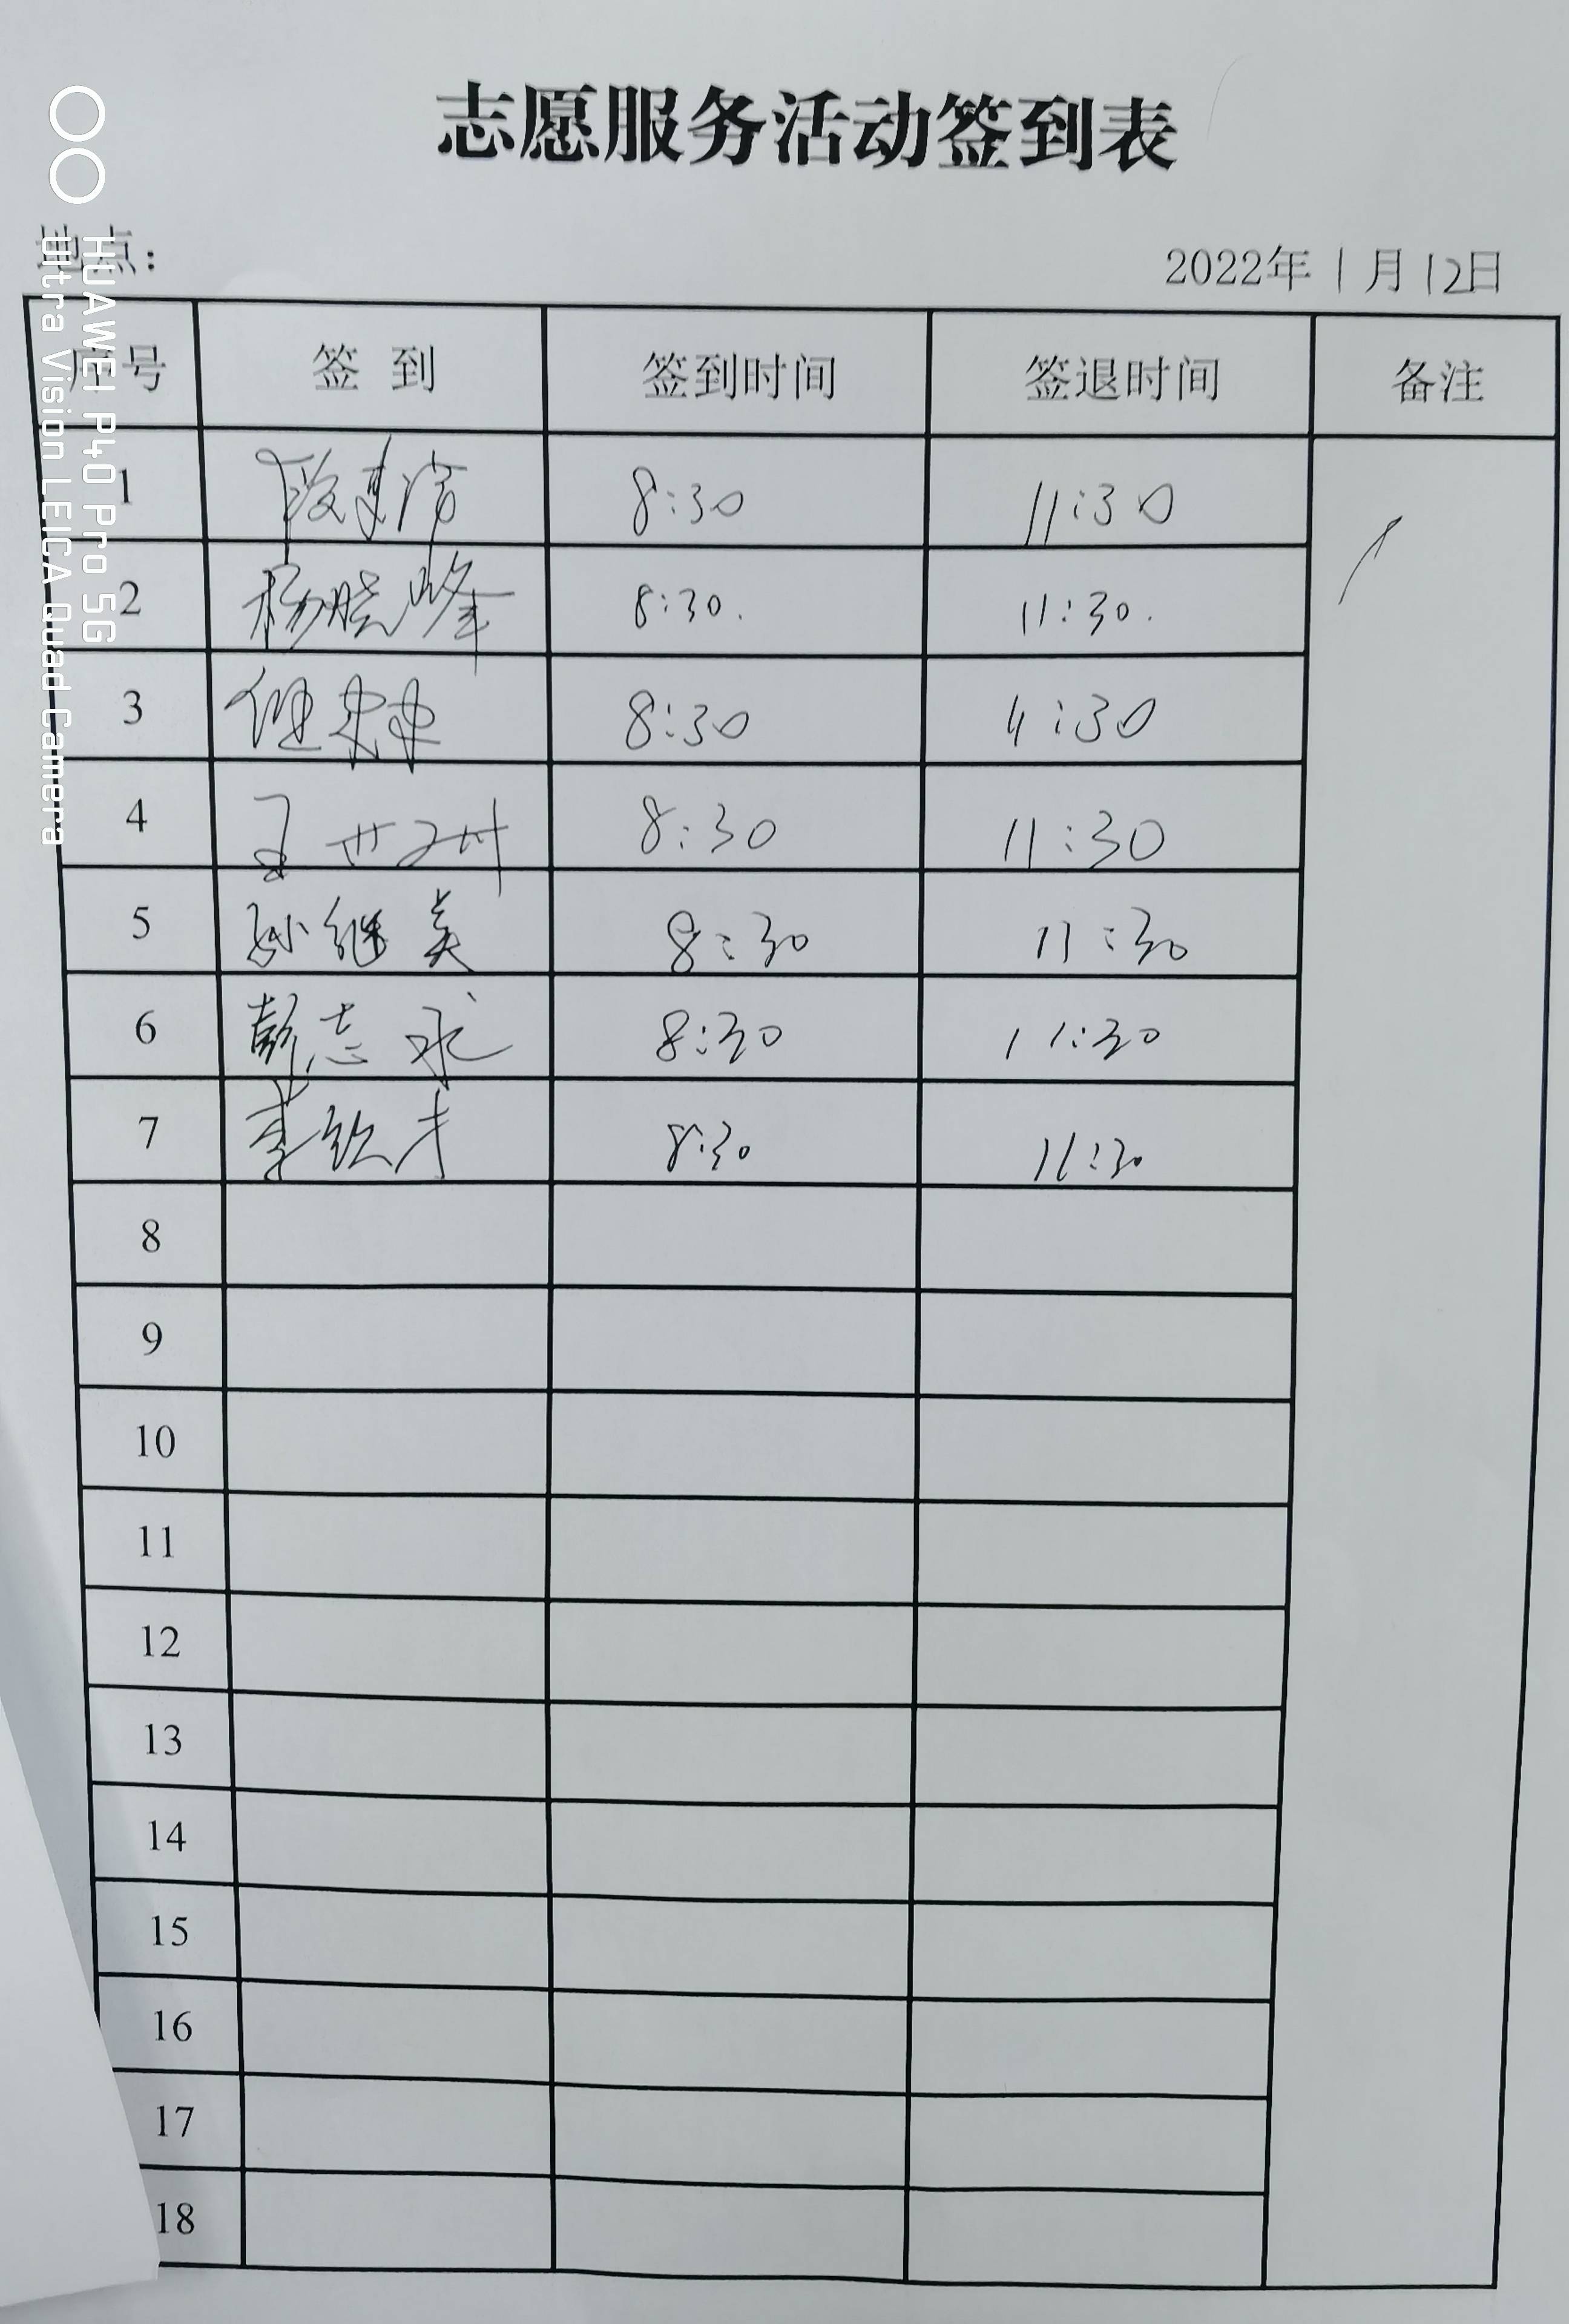 志愿服务活动签到表
地点：
2022年 1月 12日
序号 签 到 签到时间 签退时间 备注
1 8:30 11:30
2 杨晓峰 8:30. 11:30.
3 8:30 11:30
4 8:30 11:30
5 孙继美 8:30 11:30
6 彭志永 8:30 11:30
7 李钦才 8:30 11:30
8
9
10
11
12
13
14
15
16
17
18
HUAWEI P40 Pro 5G
Ultra Vision LEICA Quad Camera